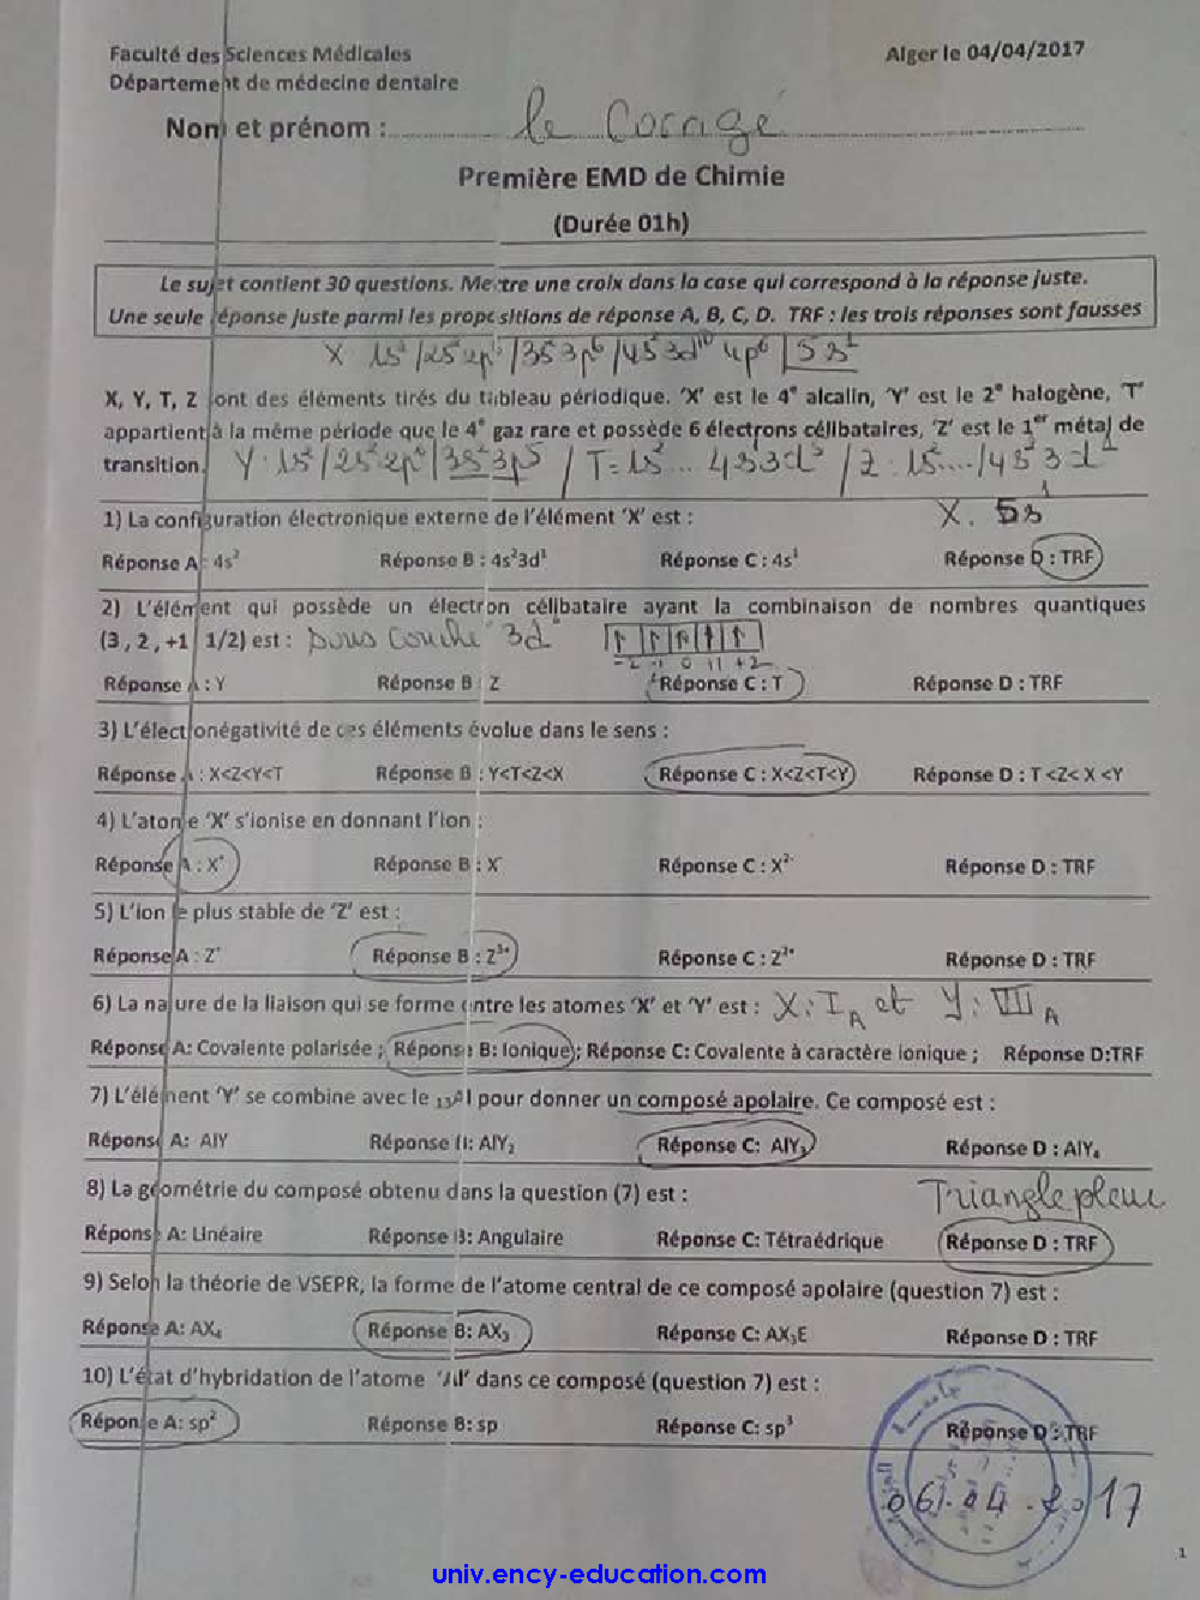 Faculté des Sciences Médicales
Alger le 04/04/2017
Département de médecine dentaire
Nom et prénom : le Corrigé
Première EMD de Chimie
(Durée 01h)
Le sujet contient 30 questions. Mettre une croix dans la case qui correspond à la réponse juste.
Une seule réponse juste parmi les propositions de réponse A, B, C, D. TRF : les trois réponses sont fausses
X 1s²/2s²2p⁶/3s²3p⁶/4s²3d¹⁰4p⁶/5s¹
X, Y, T, Z sont des éléments tirés du tableau périodique. 'X' est le 4e alcalin, 'Y' est le 2e halogène, 'T'
appartient à la même période que le 4e gaz rare et possède 6 électrons célibataires, 'Z' est le 1er métal de
transition. Y : 1s²/2s²2p⁶/3s²3p⁵ / T = 1s² ... 4s¹3d⁵ / Z : 1s²..../4s²3d¹
1) La configuration électronique externe de l'élément 'X' est : X. 5s¹
Réponse A : 4s² Réponse B : 4s²3d¹ Réponse C : 4s¹ Réponse D : TRF
2) L'élément qui possède un électron célibataire ayant la combinaison de nombres quantiques
(3 , 2 , +1 , 1/2) est : sous couche "3d"
-2 -1 0 +1 +2
Réponse A : Y Réponse B : Z Réponse C : T Réponse D : TRF
3) L'électronégativité de ces éléments évolue dans le sens :
Réponse A : X<Z<Y<T Réponse B : Y<T<Z<X Réponse C : X<Z<T<Y Réponse D : T <Z< X <Y
4) L'atome 'X' s'ionise en donnant l'ion :
Réponse A : X⁺ Réponse B : X⁻ Réponse C : X²⁻ Réponse D : TRF
5) L'ion le plus stable de 'Z' est :
Réponse A : Z⁺ Réponse B : Z³⁺ Réponse C : Z²⁺ Réponse D : TRF
6) La nature de la liaison qui se forme entre les atomes 'X' et 'Y' est : X : I A et Y : VII A
Réponse A: Covalente polarisée ; Réponse B: Ionique ; Réponse C: Covalente à caractère ionique ; Réponse D:TRF
7) L'élément 'Y' se combine avec le ₁₃Al pour donner un composé apolaire. Ce composé est :
Réponse A: AlY Réponse B: AlY₂ Réponse C: AlY₃ Réponse D : AlY₄
8) La géométrie du composé obtenu dans la question (7) est : Triangle plane
Réponse A: Linéaire Réponse B: Angulaire Réponse C: Tétraédrique Réponse D : TRF
9) Selon la théorie de VSEPR, la forme de l'atome central de ce composé apolaire (question 7) est :
Réponse A: AX₄ Réponse B: AX₃ Réponse C: AX₃E Réponse D : TRF
10) L'état d'hybridation de l'atome 'Al' dans ce composé (question 7) est :
Réponse A: sp² Réponse B: sp Réponse C: sp³ Réponse D : TRF
06.04.2017
1
univ.ency-education.com